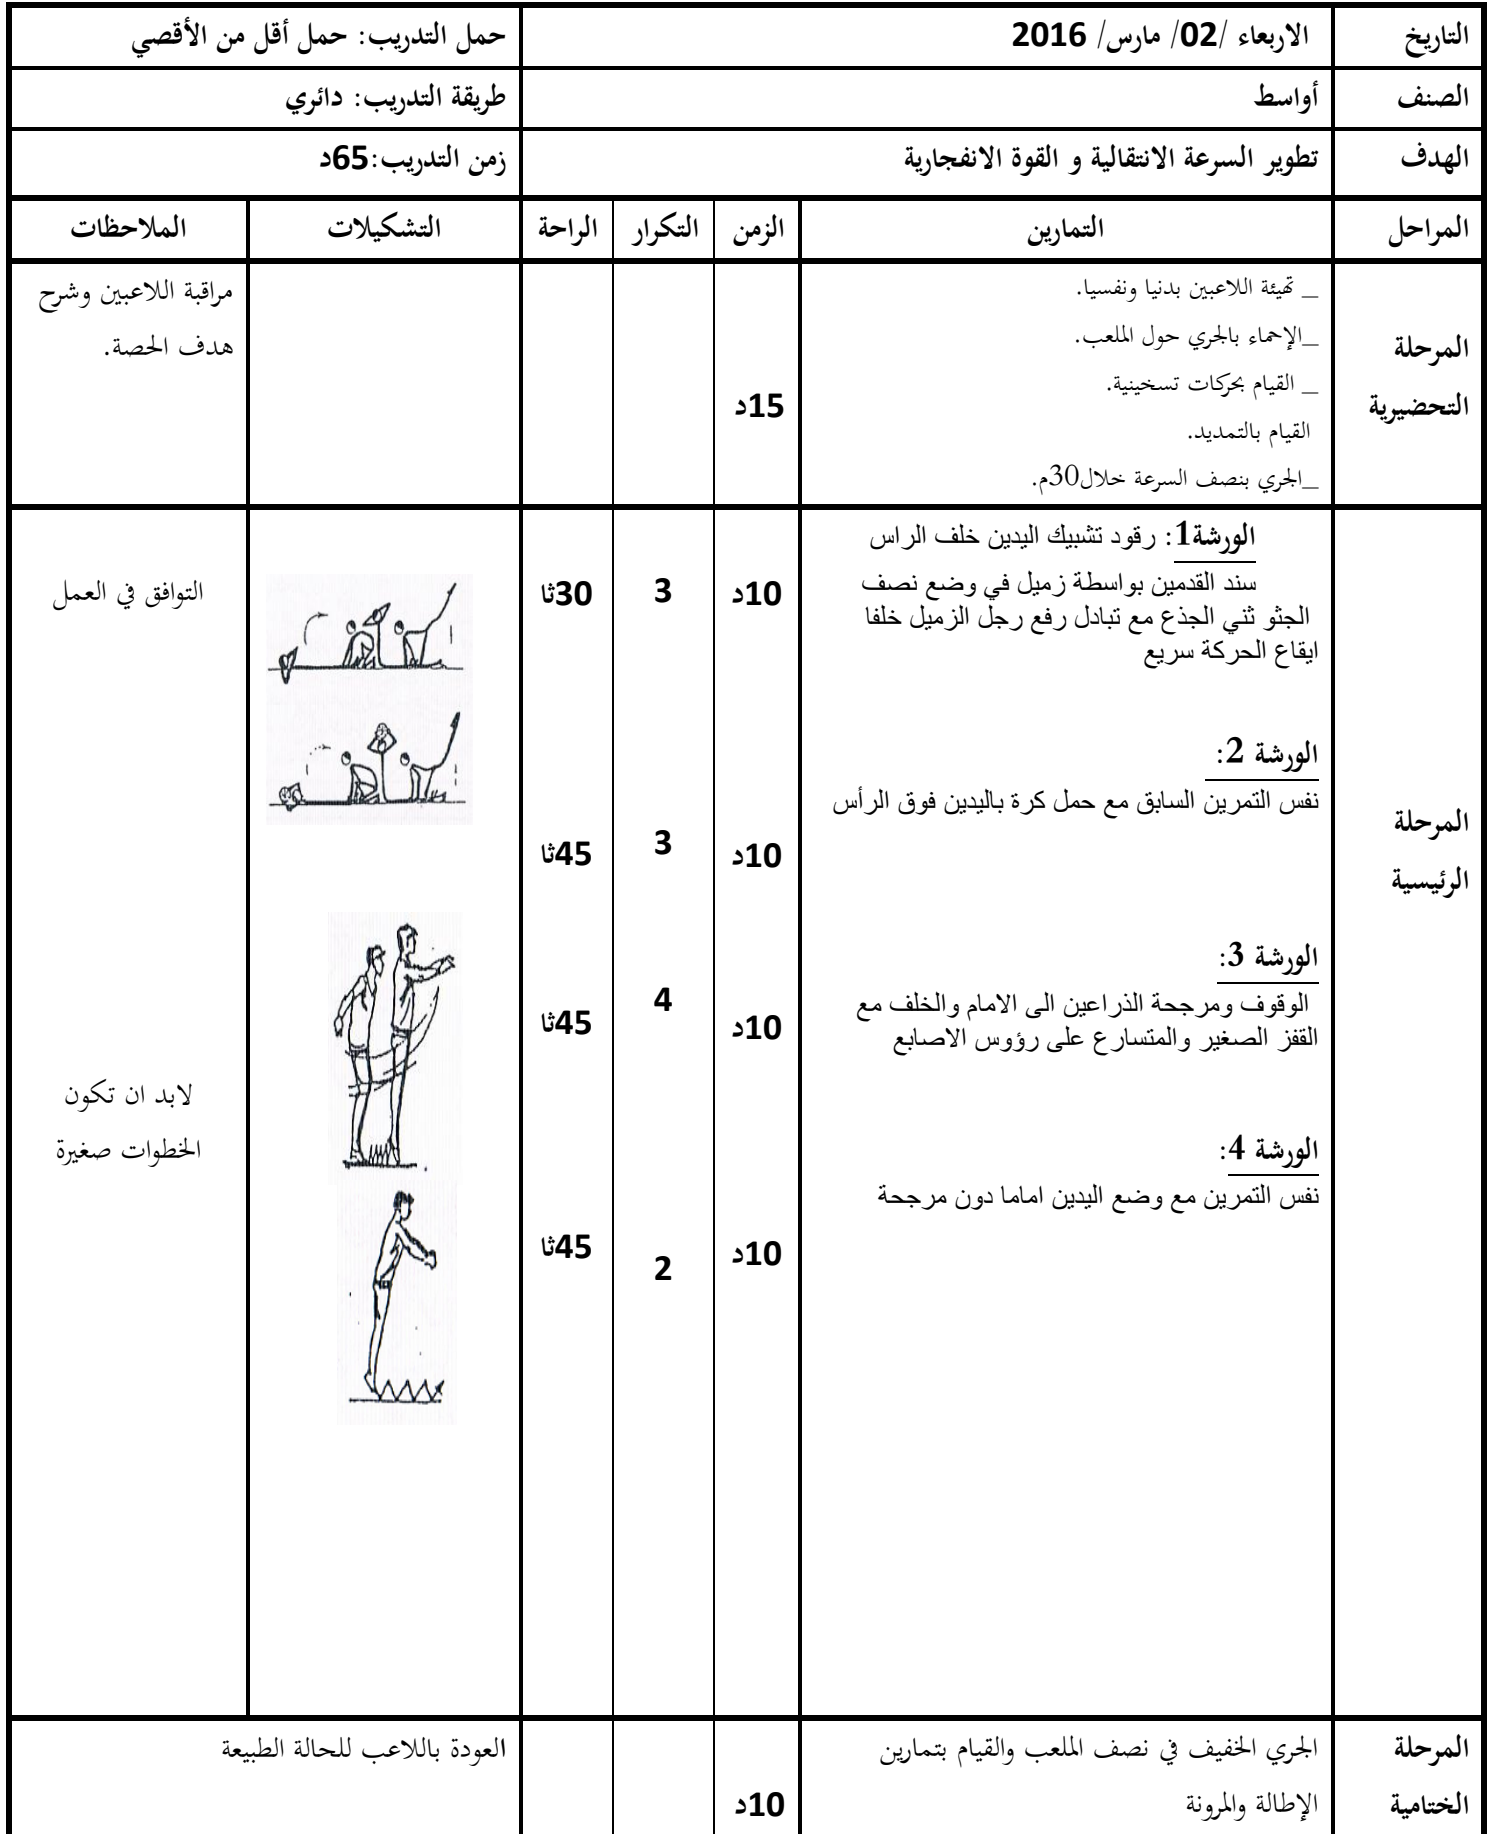 التاريخ
الاربعاء /02/ مارس/ 2016
حمل التدريب: حمل أقل من الأقصي
الصنف
أواسط
طريقة التدريب: دائري
الهدف
تطوير السرعة الانتقالية و القوة الانفجارية
زمن التدريب:65د
المراحل
التمارين
الزمن
التكرار
الراحة
التشكيلات
الملاحظات
المرحلة
التحضيرية
_ تهيئة اللاعبين بدنيا ونفسيا.
_الإحماء بالجري حول الملعب.
_ القيام بحركات تسخينية.
القيام بالتمديد.
_الجري بنصف السرعة خلال30م.
15د
مراقبة اللاعبين وشرح
هدف الحصة.
المرحلة
الرئيسية
الورشة1: رقود تشبيك اليدين خلف الراس
سند القدمين بواسطة زميل في وضع نصف
الجثو ثني الجذع مع تبادل رفع رجل الزميل خلفا
ايقاع الحركة سريع
10د
3
30ثا
التوافق في العمل
الورشة 2:
نفس التمرين السابق مع حمل كرة باليدين فوق الرأس
10د
3
45ثا
الورشة 3:
الوقوف ومرجحة الذراعين الى الامام والخلف مع
القفز الصغير والمتسارع على رؤوس الاصابع
10د
4
45ثا
لابد ان تكون
الخطوات صغيرة
الورشة 4:
نفس التمرين مع وضع اليدين اماما دون مرجحة
10د
2
45ثا
المرحلة
الختامية
الجري الخفيف في نصف الملعب والقيام بتمارين
الإطالة والمرونة
10د
العودة باللاعب للحالة الطبيعة